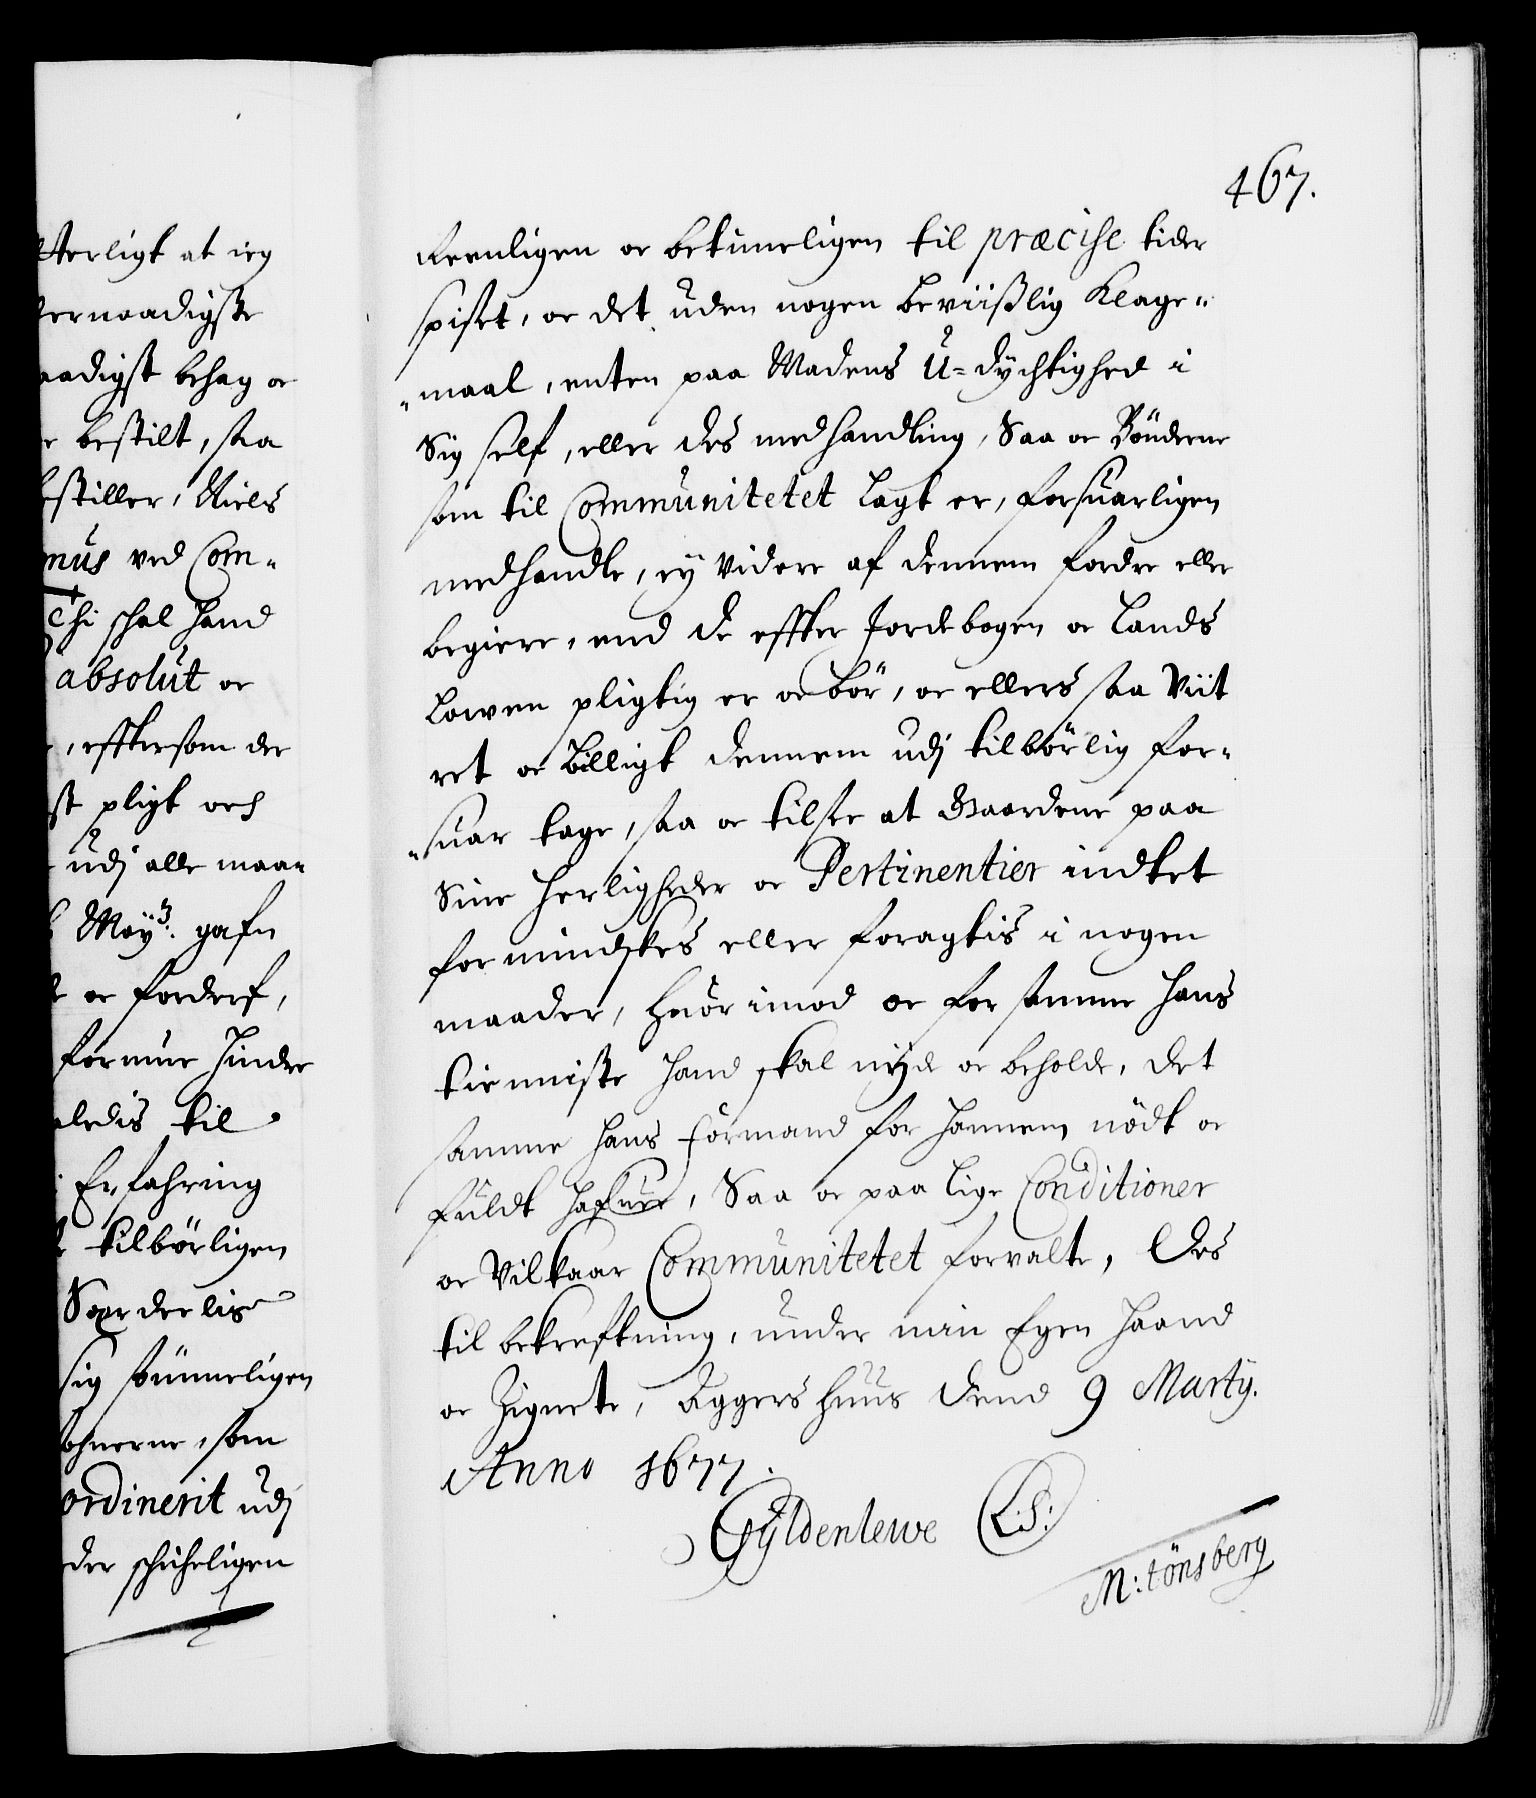 tterligt at ieg
lernaadigste
aadigst behag oc
e bestilt, saa
bestiller, Niels
mus ved Com-
Thi schal hand
absolut oc
, effter som der
st pligt och
udj alle maa-
Mayß. gafn
oc forderf,
formue hindre
aledis til
Erfahring
tilbörligen
Særdeelis
sig sömmeligen
som
ordinerit udj
der schicheligen
467.
Reenligen oc betimeligen til præcise tider
spiset, oc det uden nogen beviißlig Klage-
maal, enten paa Madens U=dychtighed i
Sig self, eller des medhandling, Saa oc Bönderne
som til Communitetet lagt er, forsuarligen
medhandle, ey videre af dennem fordre eller
begiere, end de effter Jordebogen oc Lands
Lowen pligtig er oc bör, oc ellers saa viit
ret oc billigt dennem udj tilbörlig for-
suar tage, saa oc tilsee at Gaardene paa
Sine herligheder oc Pertinentier indtet
formindskes eller foragtis i nogen
maader, Huorimod oc for samme hans
tienniste hand skal nyde oc beholde, det
samme hans formand for hannem nödt oc
fuldt hafuer, Saa oc paa lige Conditioner
oc Vilkaar Communitetet forvalte, Des
til bekrefftning, under min Egen haand
oc Zignete, Aggershuus dend 9 Martij.
Anno 1677.
Gyldenlewe L:S:
M: tönsberg